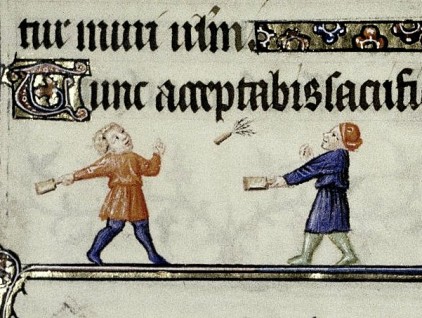 tur muri
Tunc acceptabis sacrifi